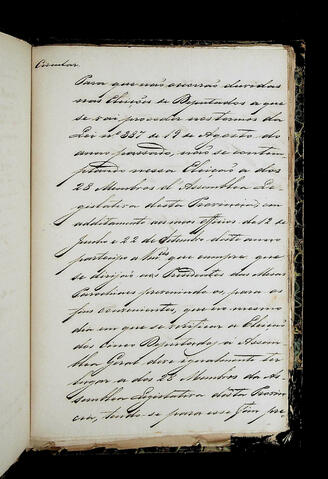 Circular
Para que não occorrão duvidas
nas Eleições de Deputados a que
se vai proceder nos termos da
Lei nº 387 de 19 de Agosto do
anno passado, não se contem-
plando nessa Eleição a dos
28 Membros d'Assemblea Le-
gislativa desta Provincia; em
additamento aos meos officios de 12 de
Junho e 22 de Setembro deste anno
participo a que cumpre que
se dirijão aos Presidentes das Mesas
Parochiaes prevenindo os, para os
fins convenientes, que no mesmo
dia em que se verificar a Eleição
dos Cinco Deputados á Assem-
blea Geral deve igualmente ter
lugar a dos 28 Membros da As-
semblea Legislativa desta Provin-
cia, tendo-se para esse fim pre-